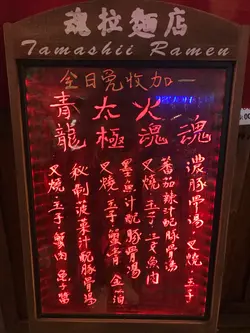 魂拉麵店
Tamashii Ramen
全日免收加一
魂
濃豚骨湯
叉燒 玉子
火魂
蕃茄辣汁配豚骨湯
叉燒 玉子 魚肉
太極
墨魚汁配豚骨湯
叉燒 玉子 蟹膏 金箔
青龍
秘制菠菜汁配豚骨湯
叉燒 玉子 蟹肉 魚子醬